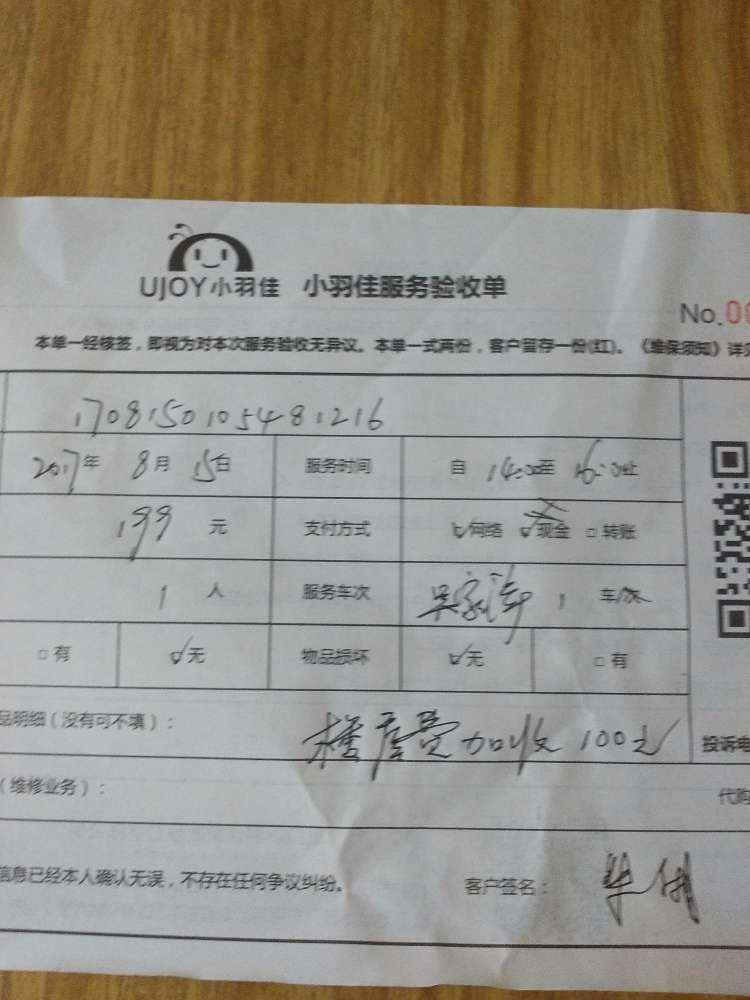 UJOY小羽佳 小羽佳服务验收单
No.00
本单一经核签，即视为对本次服务验收无异议。本单一式两份，客户留存一份(红)。《维保须知》详见
1708150105481216
2017年 8月 15日 服务时间 自 14:00至 16:00止
199 元 支付方式 网络 现金 转账
1 人 服务车次 1 车/次
□有 无 物品损坏 无 □有
品明细（没有可不填）： 楼层费加收100元 投诉电
（维修业务）： 代购
信息已经本人确认无误，不存在任何争议纠纷。 客户签名：